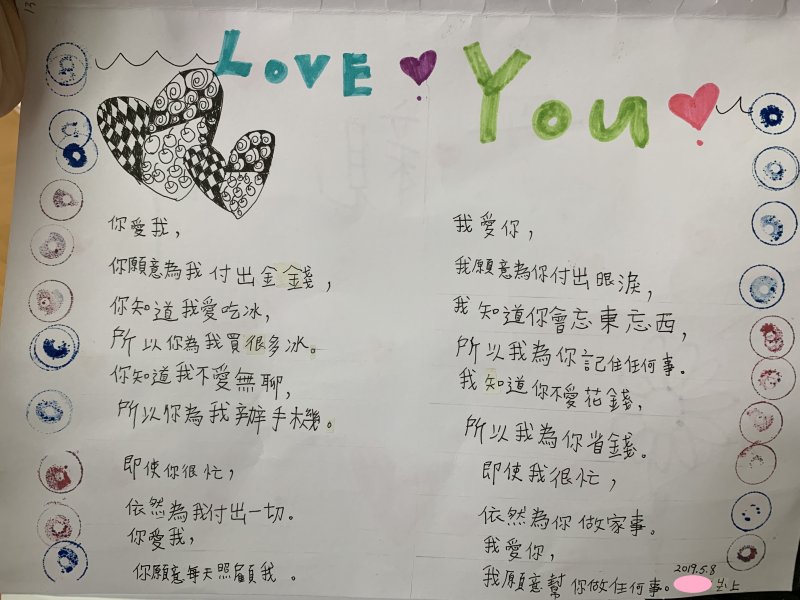 LOVE You
你愛我，
你願意為我付出金錢，
你知道我愛吃冰，
所以你為我買很多冰。
你知道我不愛無聊，
所以你為我辦手機。
即使你很忙，
依然為我付出一切。
你愛我，
你願意每天照顧我。
我愛你，
我願意為你付出眼淚，
我知道你會忘東忘西，
所以我為你記住任何事。
我知道你不愛花錢，
所以我為你省錢。
即使我很忙，
依然為你做家事。
我愛你，
我願意幫你做任何事。
2019.5.8
上